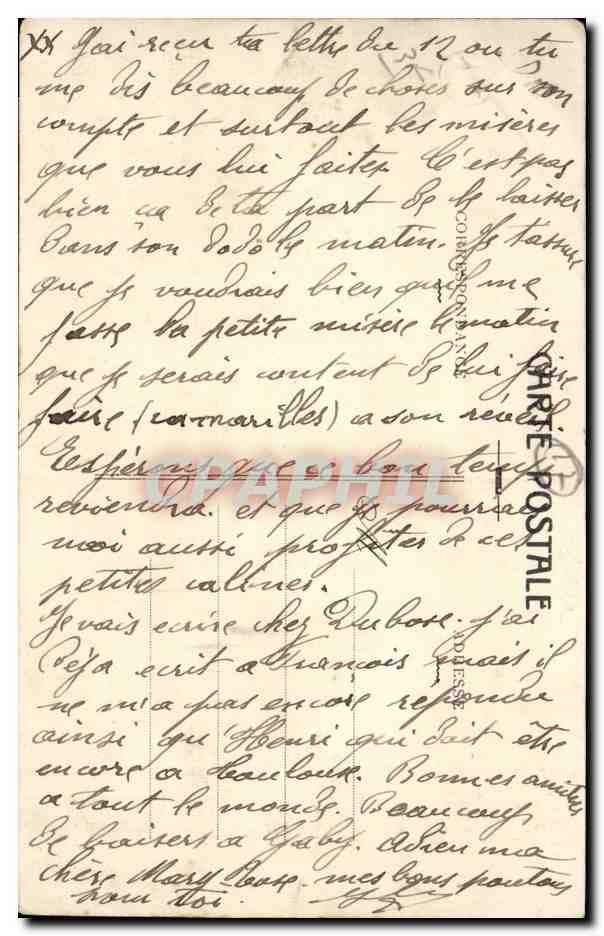 XX J'ai reçu ta lettre du 12 ou tu
me dis beaucoup de choses sur son
compte et surtout les misères
que vous lui faites. C'est pas
bien ca de ta part de le laisser
dans son dodo le matin. Je t'assure
que je voudrais bien qu'il me
fasse la petite misère le matin
que je serais content de lui faire
faire (                ) a son réveil.
Espérons que ce bon temps
reviendra. et que je pourrai
moi aussi profiter de ces
petites calines.
Je vais ecrire chez Dubose. j'ai
Déja ecrit a Francois mais il
ne m'a pas encore repondu
ainsi qu'Henri qui doit être
encore a Toulouse. Bonnes amities
a tout le monde. Beaucoup
de baisers a Gaby. Adieu ma
chère Mary-Rose. mes bons poutous
pour toi.
CORRESPONDANCE
CARTE POSTALE
ADRESSE
CPAPHIL